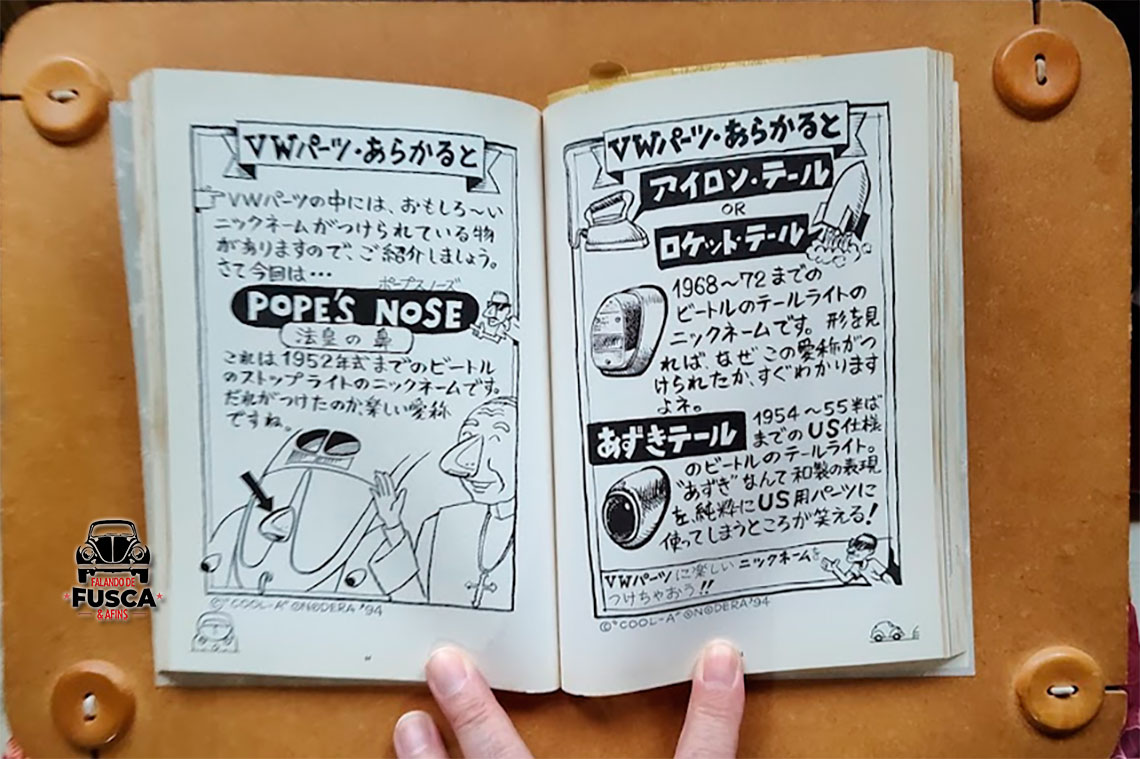 VWパーツ・あらかると
VWパーツの中には、おもしろ〜い
ニックネームがつけられている物
がありますので、ご紹介しましょう。
さて今回は…
ポープスノーズ
POPE'S NOSE
法皇の鼻
これは1952年式までのビートル
のストップライトのニックネームです。
だれがつけたのか、楽しい愛称
ですね。
©"COOL-A" ONODERA '94
VWパーツ・あらかると
アイロン・テール
OR
ロケット・テール
1968〜72までの
ビートルのテールライトの
ニックネームです。形を見
れば、なぜこの愛称がつ
けられたか、すぐわかります
よネ。
あずきテール
1954〜55半ば
までのUS仕様
のビートルのテールライト。
"あずき"なんて和製の表現
を、純粋にUS用パーツに
使ってしまうところが笑える!
VWパーツに楽しいニックネームを
つけちゃおう!!
©"COOL-A" ONODERA '94
FALANDO DE
FUSCA
& AFINS